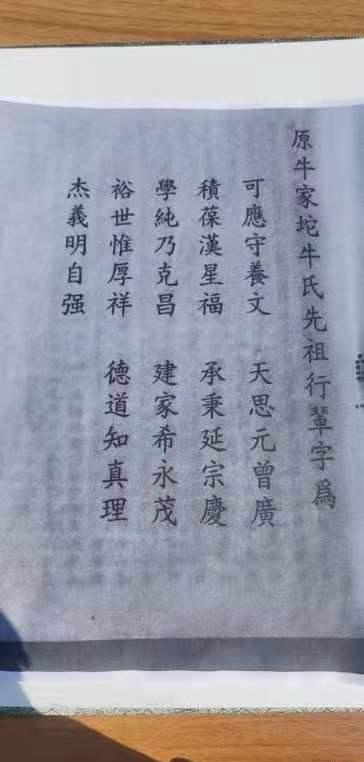 原牛家坨牛氏先祖行輩字爲
可應守養文 天思元曾廣
積葆漢星福 承秉延宗慶
學純乃克昌 建家希永茂
裕世惟厚祥 德道知真理
杰義明自强